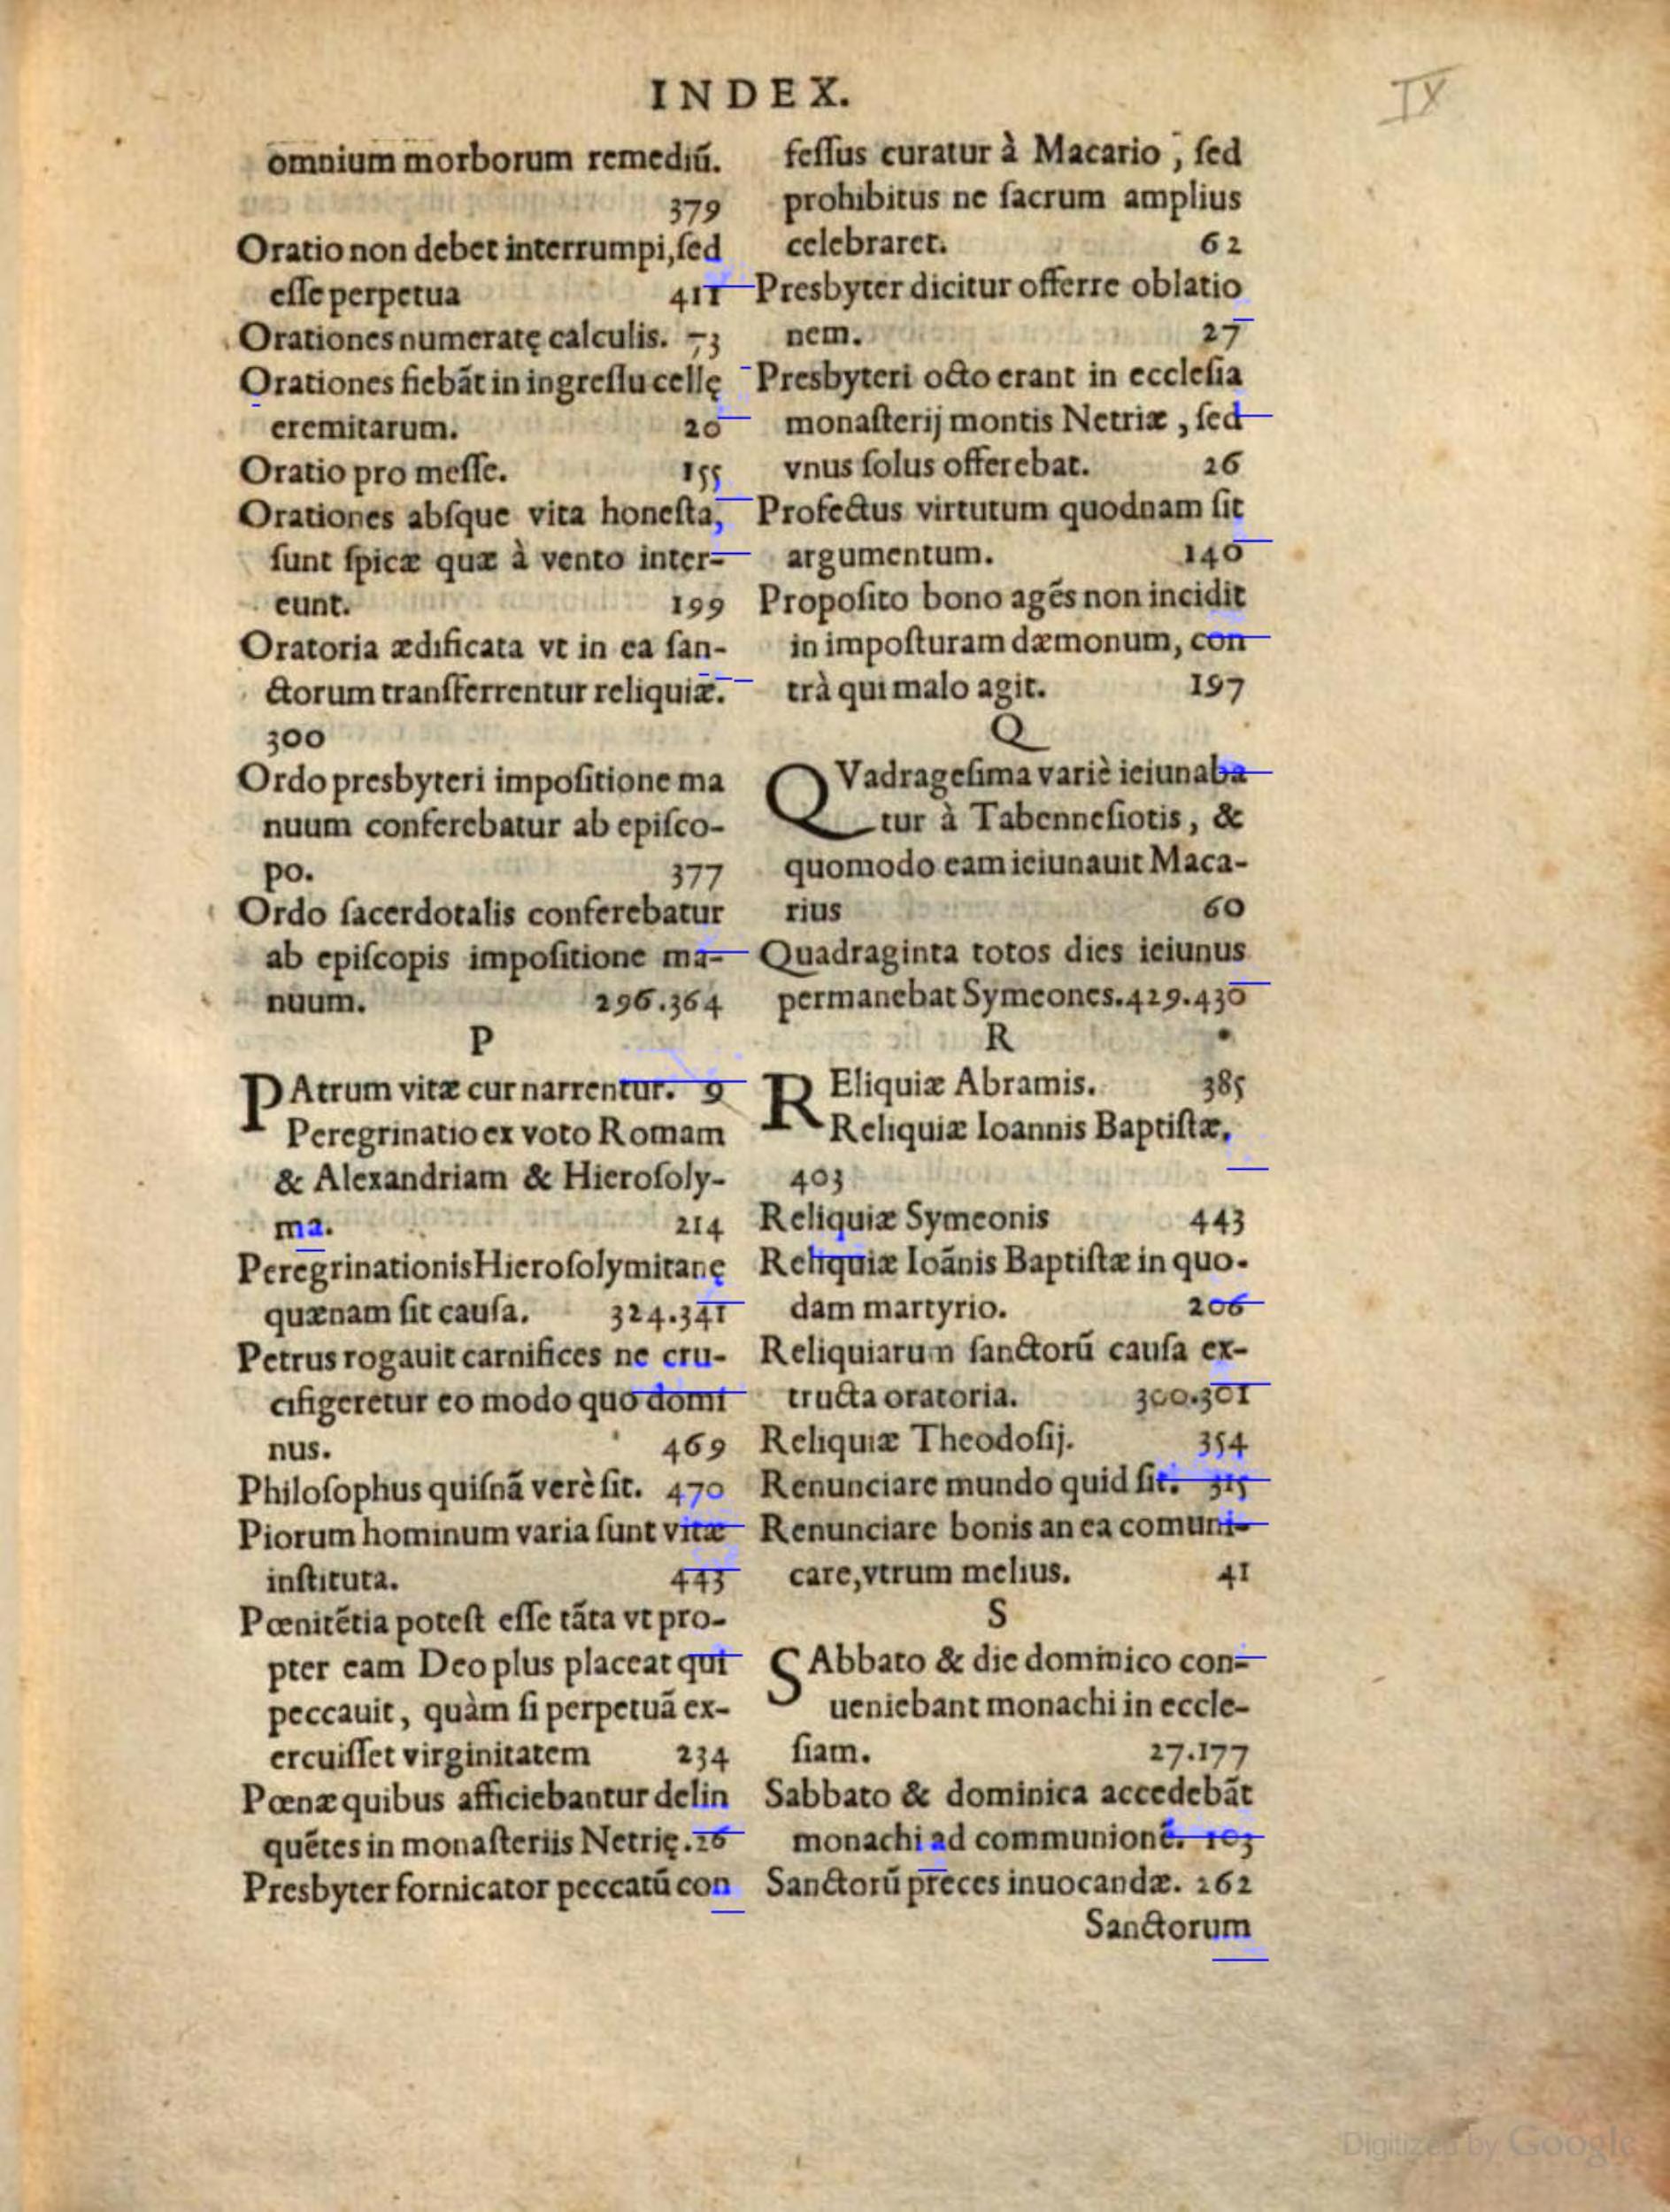 INDEX.
IX
omnium morborum remediũ.
379
Oratio non debet interrumpi, ſed
eſſe perpetua 411
Orationes numeratę calculis. 73
Orationes fiebãt in ingreſſu cellę
eremitarum. 20
Oratio pro meſſe. 155
Orationes abſque vita honeſta,
ſunt ſpicæ quæ à vento inter-
eunt. 199
Oratoria ædificata vt in ea ſan-
ctorum transferrentur reliquiæ.
300
Ordo presbyteri impoſitione ma
nuum conferebatur ab epiſco-
po. 377
Ordo ſacerdotalis conferebatur
ab epiſcopis impoſitione ma-
nuum. 296.364
P
PAtrum vitæ cur narrentur. 9
Peregrinatio ex voto Romam
& Alexandriam & Hieroſoly-
ma. 214
Peregrinationis Hieroſolymitanę
quænam ſit cauſa. 324.341
Petrus rogauit carnifices ne cru-
cifigeretur eo modo quo domi
nus. 469
Philoſophus quiſnã verè ſit. 470
Piorum hominum varia ſunt vitæ
inſtituta. 443
Pœnitẽtia poteſt eſſe tãta vt pro-
pter eam Deo plus placeat qui
peccauit, quàm ſi perpetuã ex-
ercuiſſet virginitatem 234
Pœnæ quibus afficiebantur delin
quẽtes in monaſteriis Netrię. 26
Presbyter fornicator peccatũ con
feſſus curatur à Macario, ſed
prohibitus ne ſacrum amplius
celebraret. 62
Presbyter dicitur offerre oblatio
nem. 27
Presbyteri octo erant in eccleſia
monaſterij montis Netriæ, ſed
vnus ſolus offerebat. 26
Profectus virtutum quodnam ſit
argumentum. 140
Propoſito bono agẽs non incidit
in impoſturam dæmonum, con
trà qui malo agit. 197
Q
QVadrageſima variè ieiunaba
tur à Tabenneſiotis, &
quomodo eam ieiunauit Maca-
rius 60
Quadraginta totos dies ieiunus
permanebat Symeones. 429.430
R
REliquiæ Abramis. 385
Reliquiæ Ioannis Baptiſtæ.
403
Reliquiæ Symeonis 443
Reliquiæ Ioãnis Baptiſtæ in quo-
dam martyrio. 206
Reliquiarum ſanctorũ cauſa ex-
tructa oratoria. 300.301
Reliquiæ Theodoſij. 354
Renunciare mundo quid ſit. 315
Renunciare bonis an ea comuni-
care, vtrum melius. 41
S
SAbbato & die dominico con-
ueniebant monachi in eccle-
ſiam. 27.177
Sabbato & dominica accedebãt
monachi ad communionẽ. 103
Sanctorũ preces inuocandæ. 262
Sanctorum
Digitized by Google